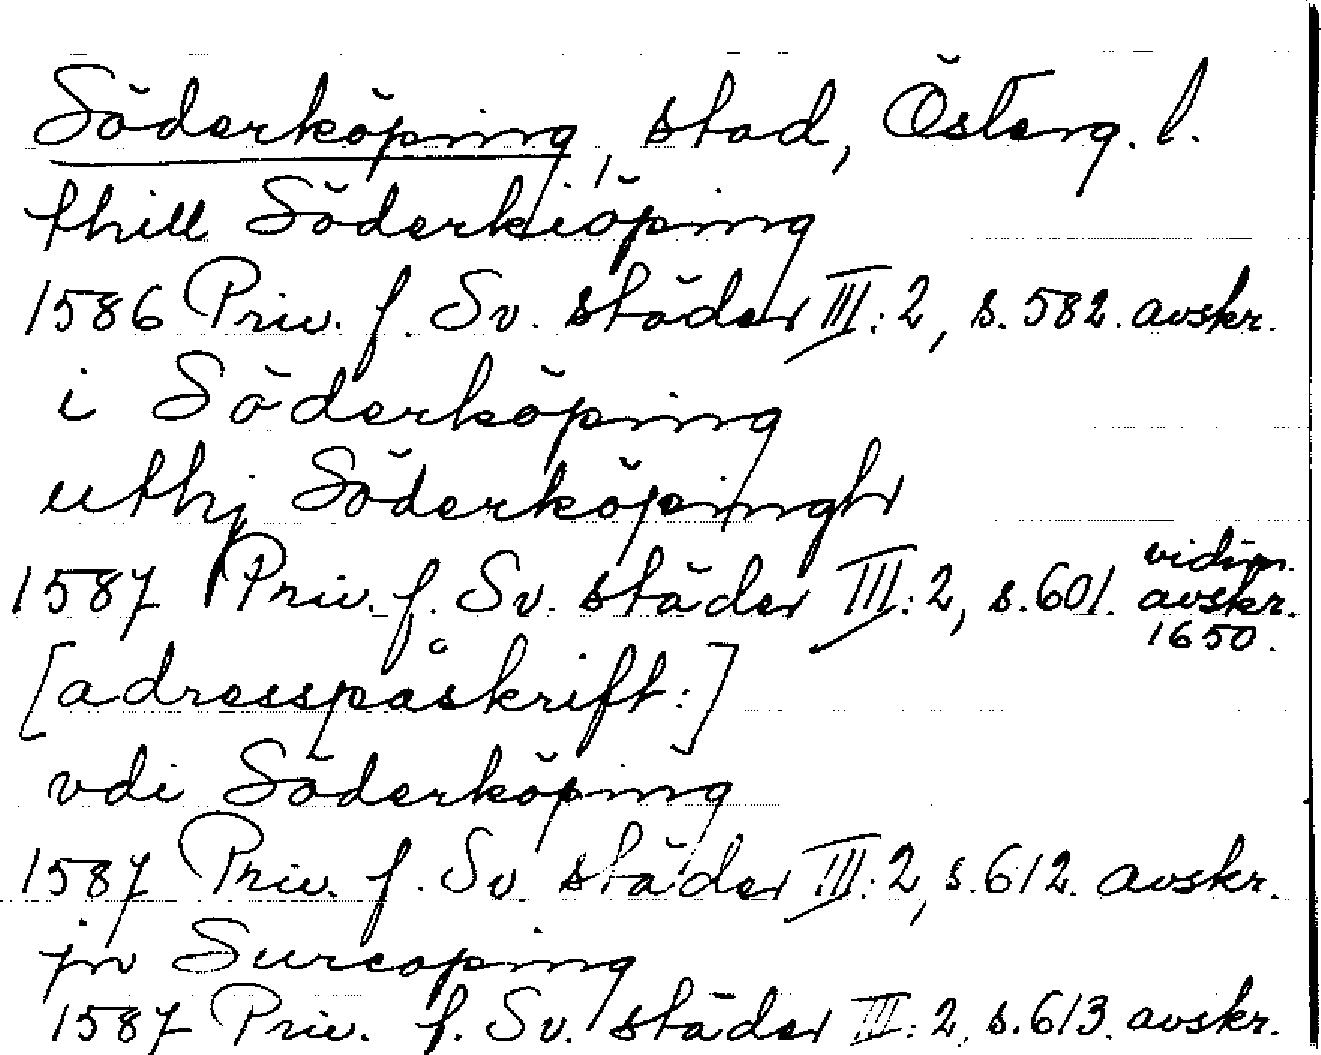 Söderköping, stad, Österg. l.
thill Söderkiöping
1586 Priv. f. Sv. städer III:2, s. 582. avskr.
i Söderköping
uthj Söderköpingh
1587 Priv. f. Sv. städer III:2, s. 601. vidim. avskr. 1650.
[adresspåskrift:]
vdi Söderköping
1587 Priv. f. Sv städer III:2, s. 612. avskr.
jn Surcoping
1587 Priv. f. Sv. städer III:2, s. 613. avskr.